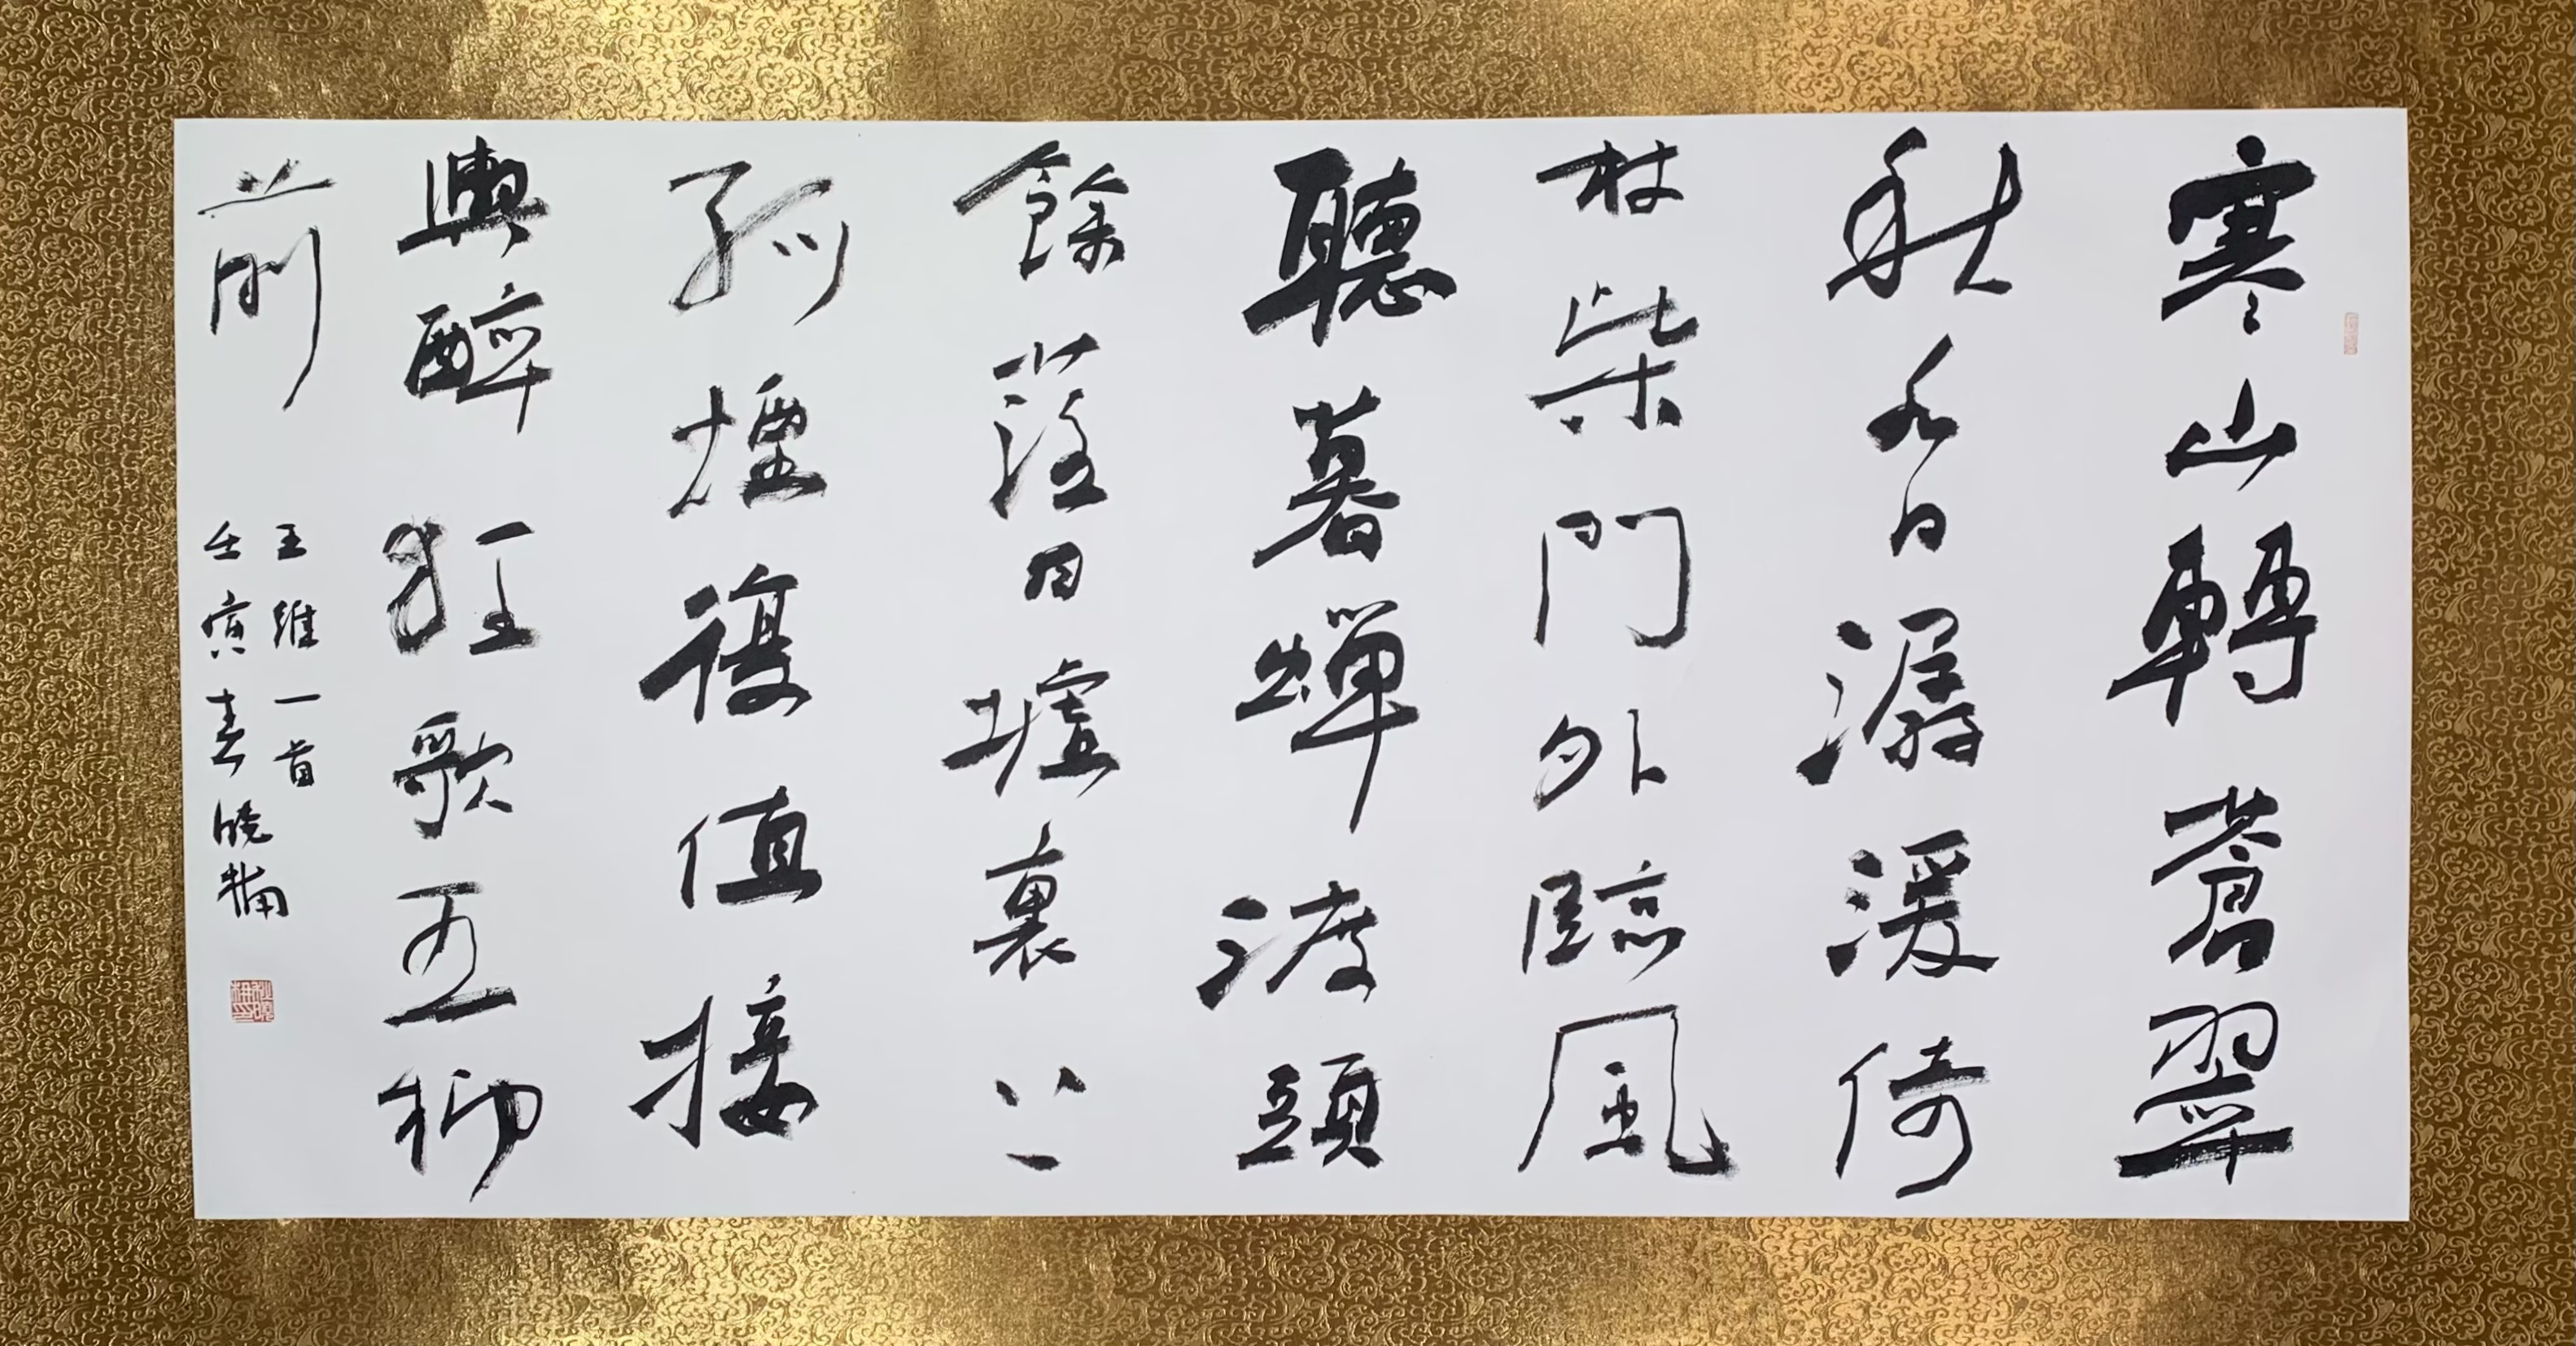 寒山轉蒼翠
秋水日潺湲倚
杖柴門外臨風
聽暮蟬渡頭
餘落日墟裏上
孤煙復值接
輿醉狂歌五柳
前
王維一首
壬寅春曉